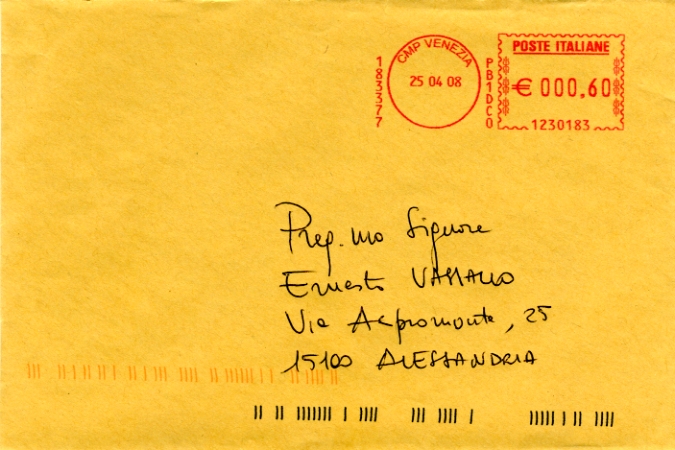 CMP VENEZIA
25 04 08
183377
PB1DC0
POSTE ITALIANE
€ 000,60
1230183
Preg.mo Signore
Ernesto VASSALLO
Via Aspromonte, 25
15100 ALESSANDRIA